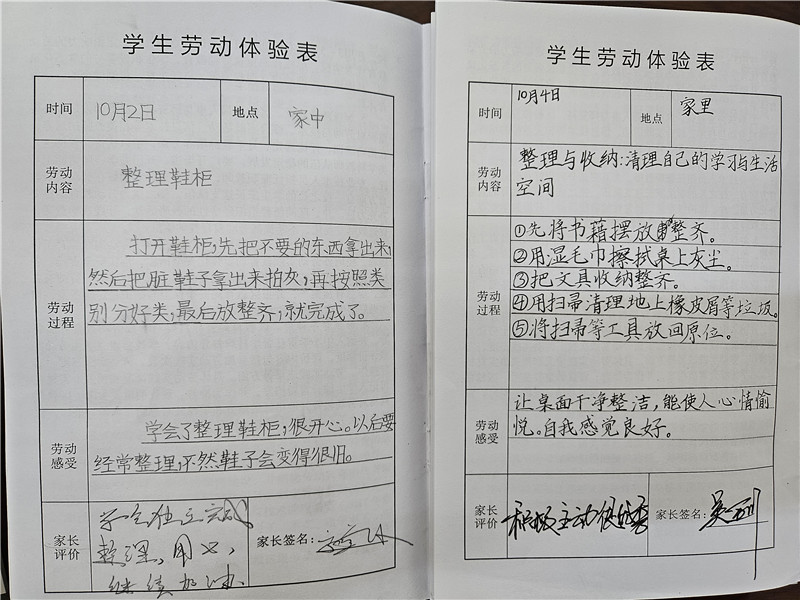 学生劳动体验表
时间
10月2日
地点
家中
劳动
内容
整理鞋柜
劳动
过程
打开鞋柜，先把不要的东西拿出来，
然后把脏鞋子拿出来拍灰，再按照类
别分好类，最后放整齐，就完成了。
劳动
感受
学会了整理鞋柜，很开心。以后要
经常整理，不然鞋子会变得很旧。
家长
评价
学会独立完成
整理，用心，
继续加油
家长签名：
学生劳动体验表
时间
10月4日
地点
家里
劳动
内容
整理与收纳：清理自己的学习与生活
空间
劳动
过程
①先将书籍摆放整齐。
②用湿毛巾擦拭桌上灰尘。
③把文具收纳整齐。
④用扫帚清理地上橡皮屑等垃圾。
⑤将扫帚等工具放回原位。
劳动
感受
让桌面干净整洁，能使人心情愉
悦。自我感觉良好。
家长
评价
积极主动很优秀
家长签名：